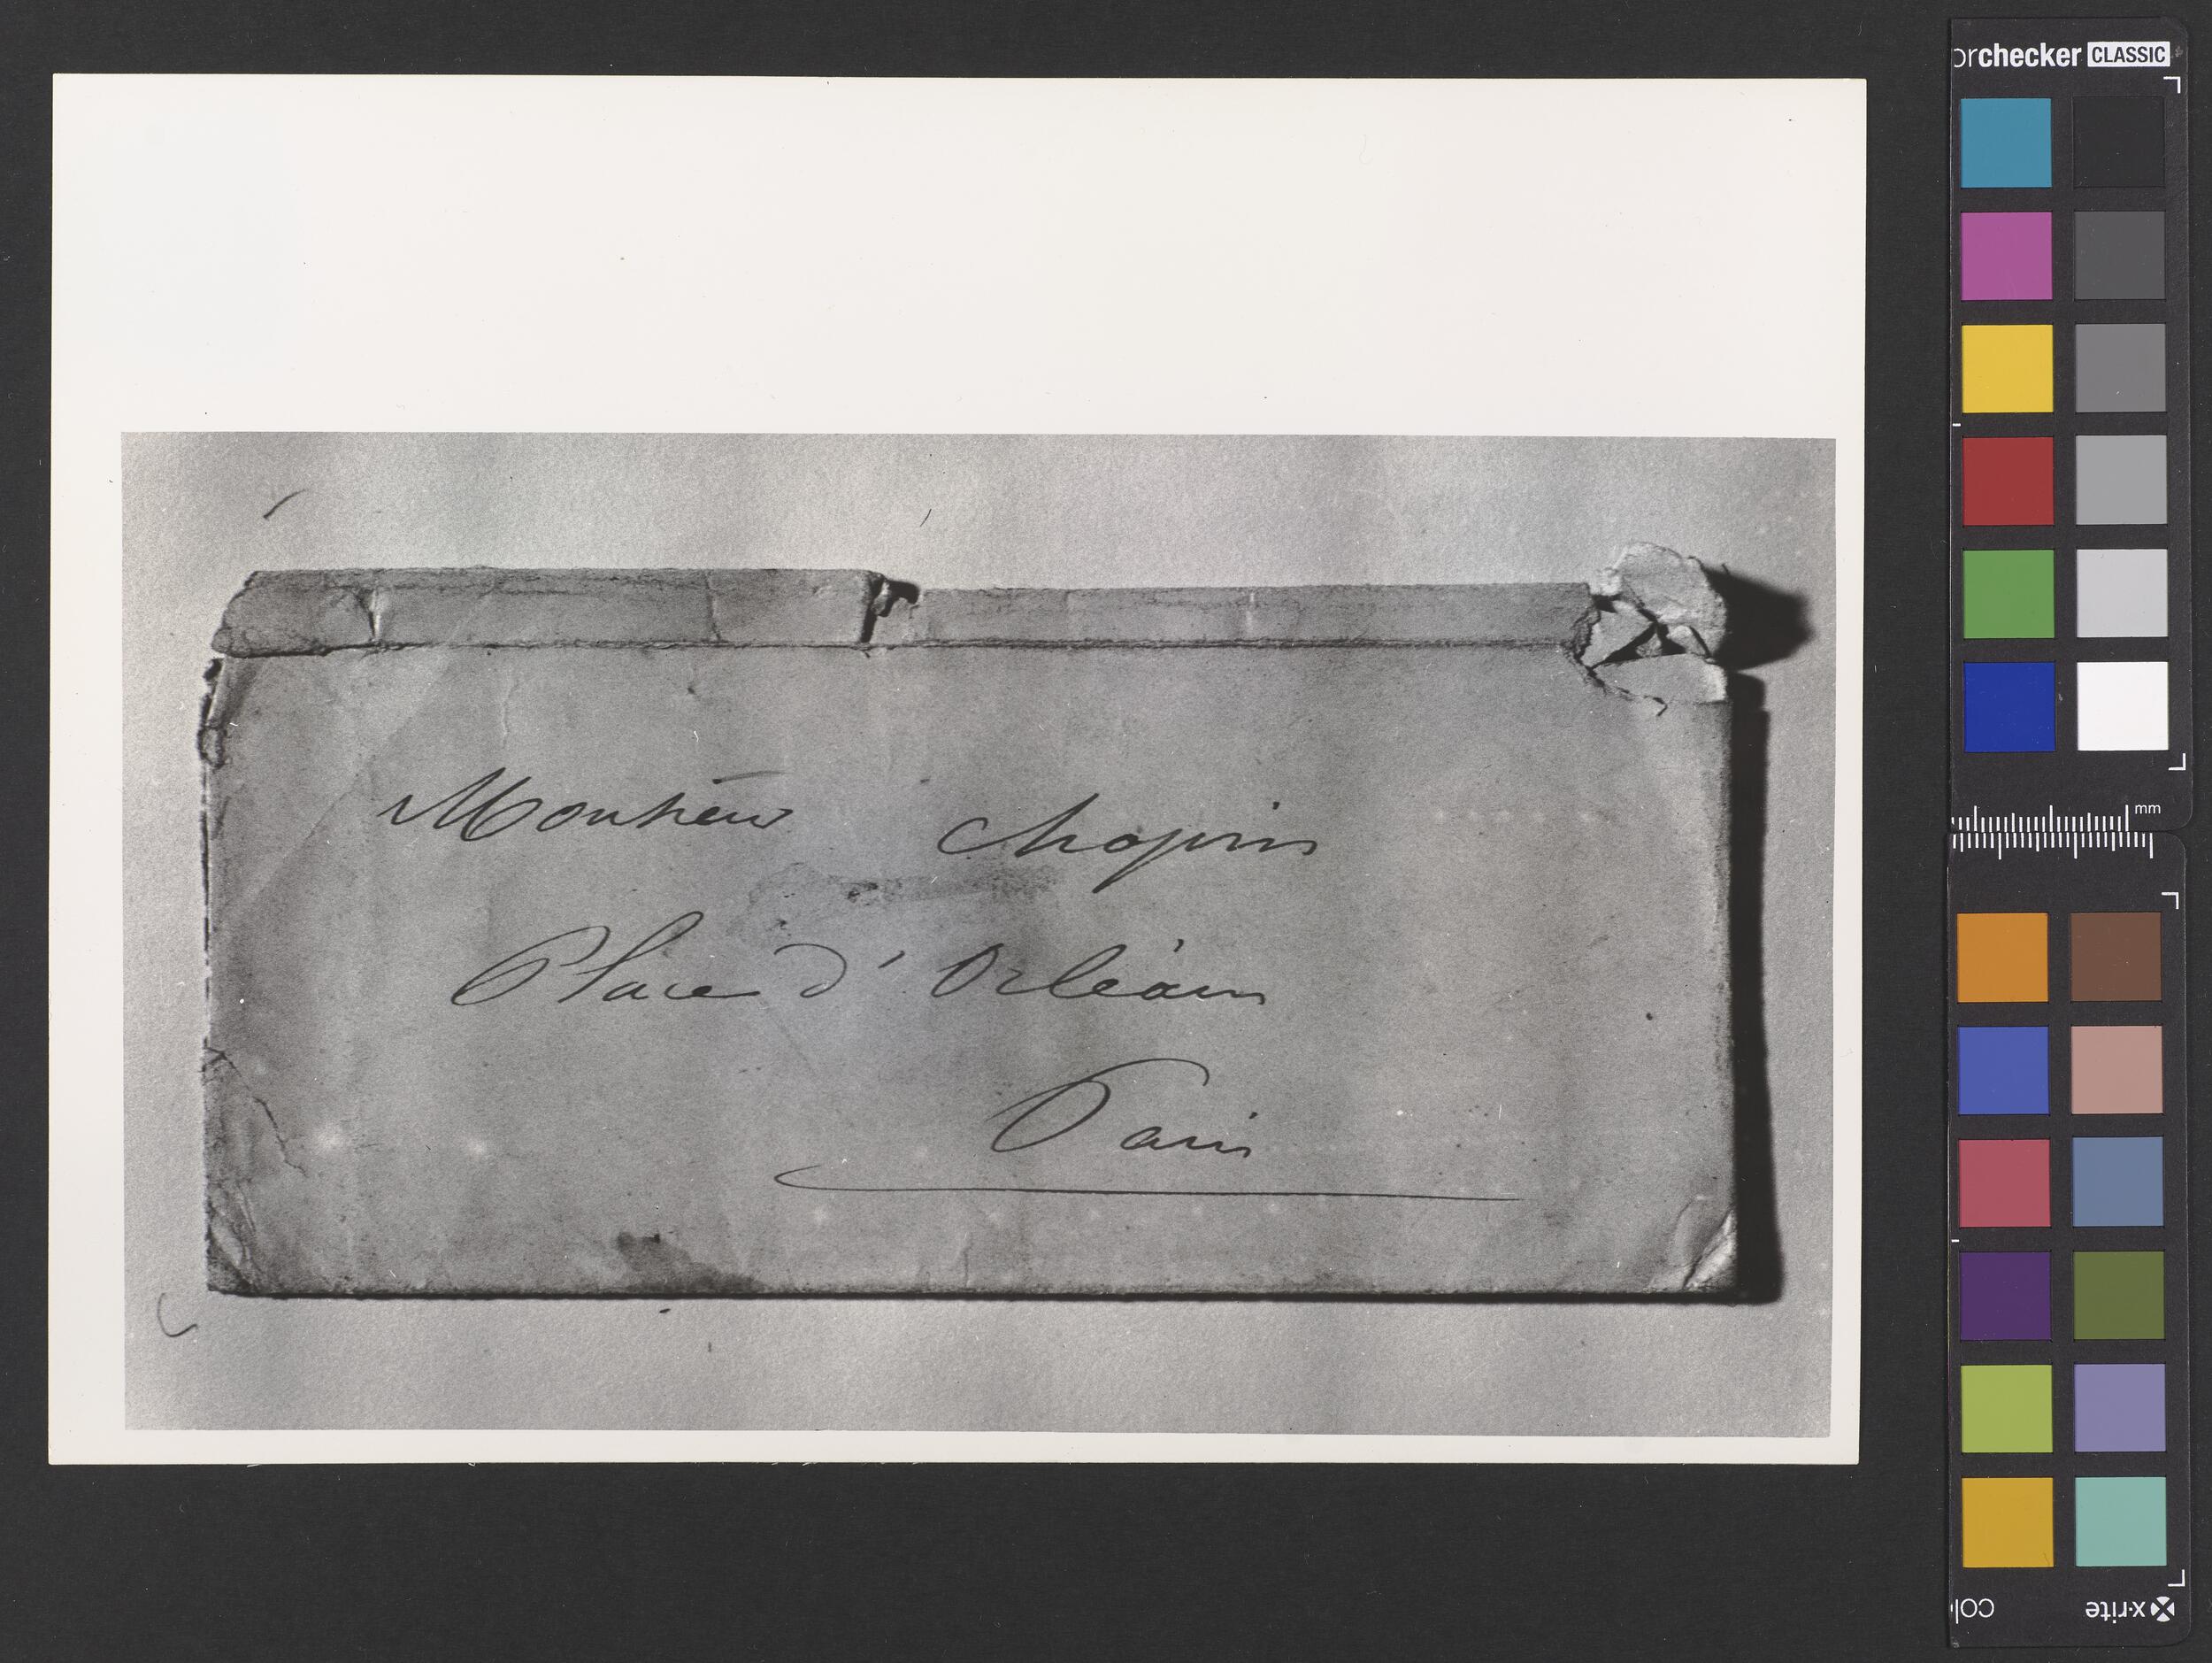 Monsieur Chopin
Place d'Orléans
Paris
orchecker CLASSIC
mm
x-rite
colo